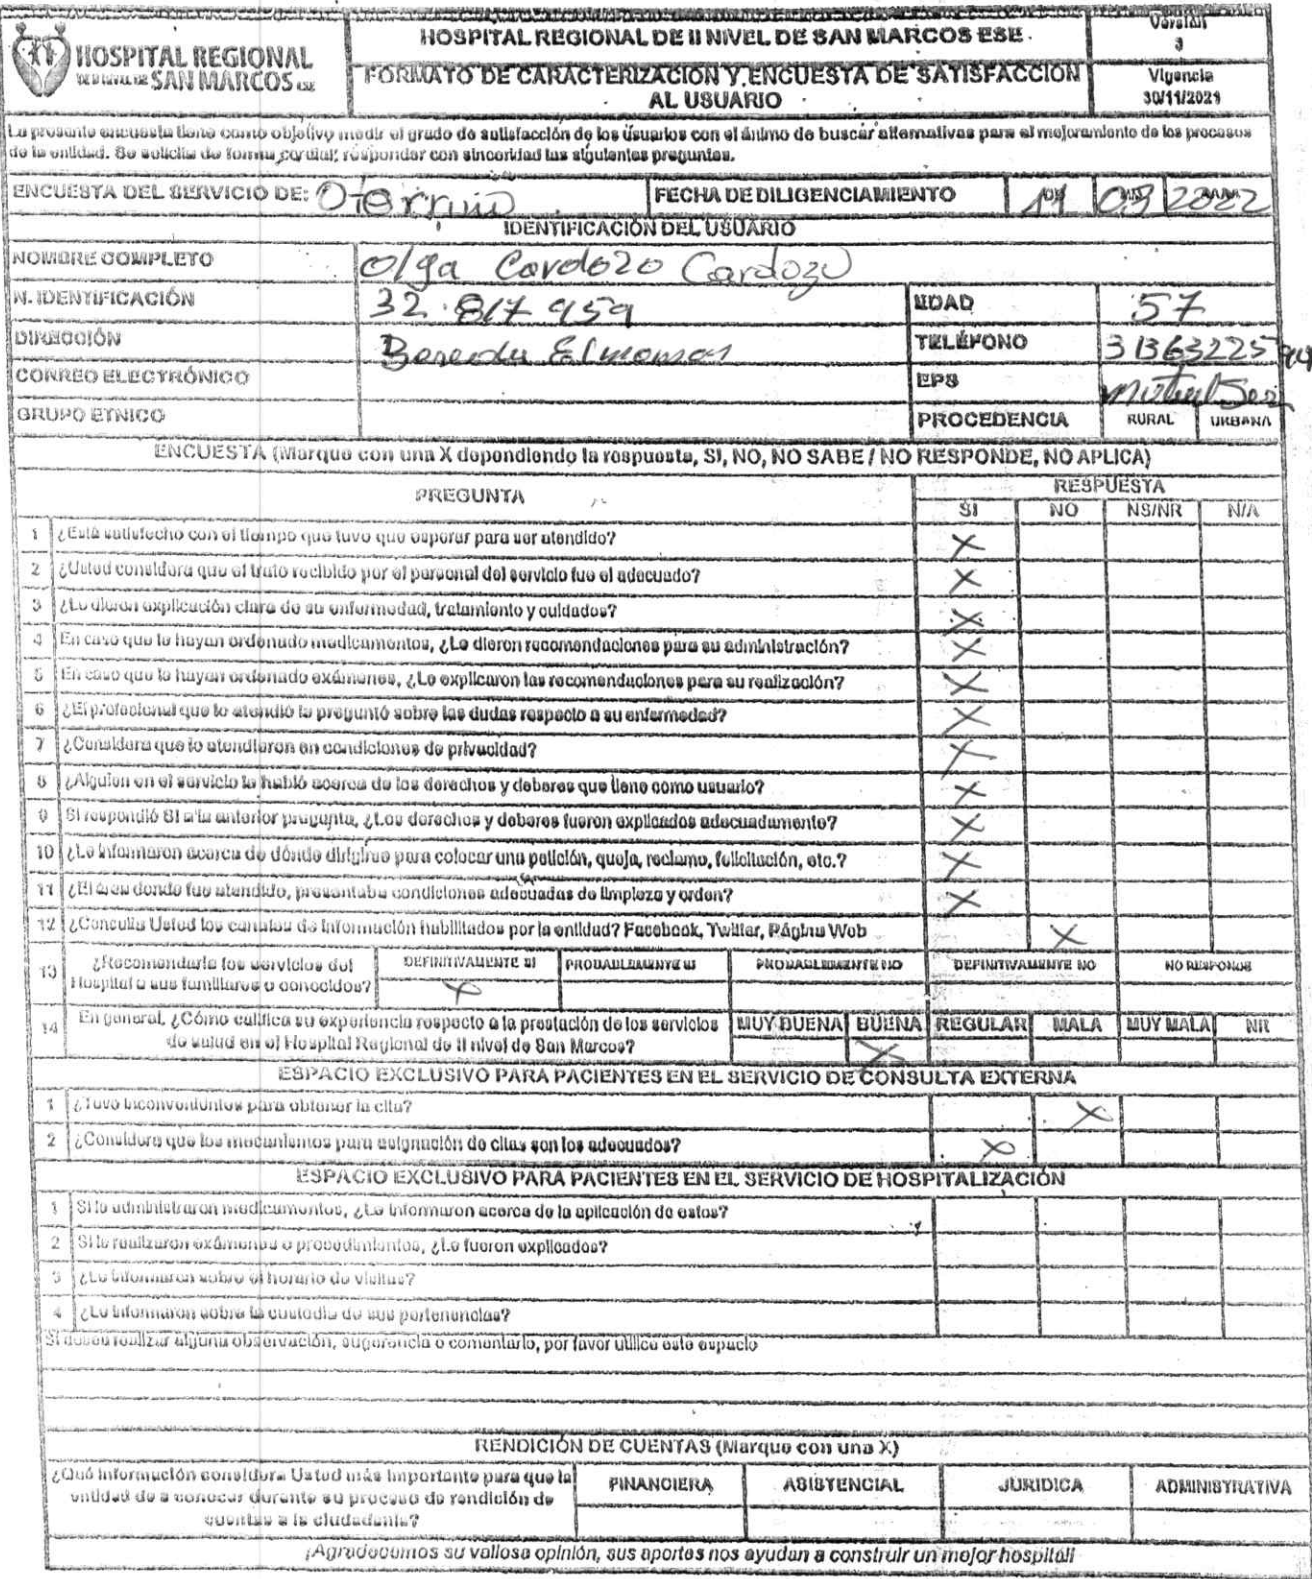 HOSPITAL REGIONAL
DE II NIVEL DE SAN MARCOS ESE
HOSPITAL REGIONAL DE II NIVEL DE SAN MARCOS ESE
FORMATO DE CARACTERIZACIÓN Y ENCUESTA DE SATISFACCIÓN
AL USUARIO
Versión
3
Vigencia
30/11/2021
La presente encuesta tiene como objetivo medir el grado de satisfacción de los usuarios con el ánimo de buscar alternativas para el mejoramiento de los procesos
de la entidad. Se solicita de forma cordial, responder con sinceridad las siguientes preguntas.
ENCUESTA DEL SERVICIO DE:
FECHA DE DILIGENCIAMIENTO 03 2022
IDENTIFICACIÓN DEL USUARIO
NOMBRE COMPLETO Olga Cardozo Cardozo
N. IDENTIFICACIÓN 32.817 959 EDAD 57
DIRECCIÓN TELÉFONO 31363225
CORREO ELECTRÓNICO EPS Mutual Ser
GRUPO ETNICO PROCEDENCIA RURAL URBANA
ENCUESTA (Marque con una X dependiendo la respuesta, SI, NO, NO SABE / NO RESPONDE, NO APLICA)
PREGUNTA RESPUESTA
SI NO NS/NR N/A
1 ¿Está satisfecho con el tiempo que tuvo que esperar para ser atendido? X
2 ¿Usted considera que el trato recibido por el personal del servicio fue el adecuado? X
3 ¿Le dieron explicación clara de su enfermedad, tratamiento y cuidados? X
4 En caso que le hayan ordenado medicamentos, ¿Le dieron recomendaciones para su administración? X
5 En caso que le hayan ordenado exámenes, ¿Le explicaron las recomendaciones para su realización? X
6 ¿El profesional que lo atendió le preguntó sobre las dudas respecto a su enfermedad? X
7 ¿Considera que lo atendieron en condiciones de privacidad? X
8 ¿Alguien en el servicio le habló acerca de los derechos y deberes que tiene como usuario? X
9 Si respondió SI a la anterior pregunta, ¿Los derechos y deberes fueron explicados adecuadamente? X
10 ¿Le informaron acerca de dónde dirigirse para colocar una petición, queja, reclamo, felicitación, etc.? X
11 ¿El área donde fue atendido, presentaba condiciones adecuadas de limpieza y orden? X
12 ¿Consulta Usted los canales de información habilitados por la entidad? Facebook, Twitter, Página Web X
13 ¿Recomendaría los servicios del
Hospital a sus familiares o conocidos?
DEFINITIVAMENTE SI PROBABLEMENTE SI PROBABLEMENTE NO DEFINITIVAMENTE NO NO RESPONDE
X
14 En general, ¿Cómo califica su experiencia respecto a la prestación de los servicios
de salud en el Hospital Regional de II nivel de San Marcos?
MUY BUENA BUENA REGULAR MALA MUY MALA NR
X
ESPACIO EXCLUSIVO PARA PACIENTES EN EL SERVICIO DE CONSULTA EXTERNA
1 ¿Tuvo inconvenientes para obtener la cita? X
2 ¿Considera que los mecanismos para asignación de citas son los adecuados? X
ESPACIO EXCLUSIVO PARA PACIENTES EN EL SERVICIO DE HOSPITALIZACIÓN
1 Si le administraron medicamentos, ¿Le informaron acerca de la aplicación de estos?
2 Si le realizaron exámenes o procedimientos, ¿Le fueron explicados?
3 ¿Le informaron sobre el horario de visitas?
4 ¿Le informaron sobre la custodia de sus pertenencias?
Si desea realizar alguna observación, sugerencia o comentario, por favor utilice este espacio
RENDICIÓN DE CUENTAS (Marque con una X)
¿Qué información considera Usted más importante para que la
entidad de a conocer durante su proceso de rendición de
cuentas a la ciudadanía?
FINANCIERA ASISTENCIAL JURIDICA ADMINISTRATIVA
¡Agradecemos su valiosa opinión, sus aportes nos ayudan a construir un mejor hospital!